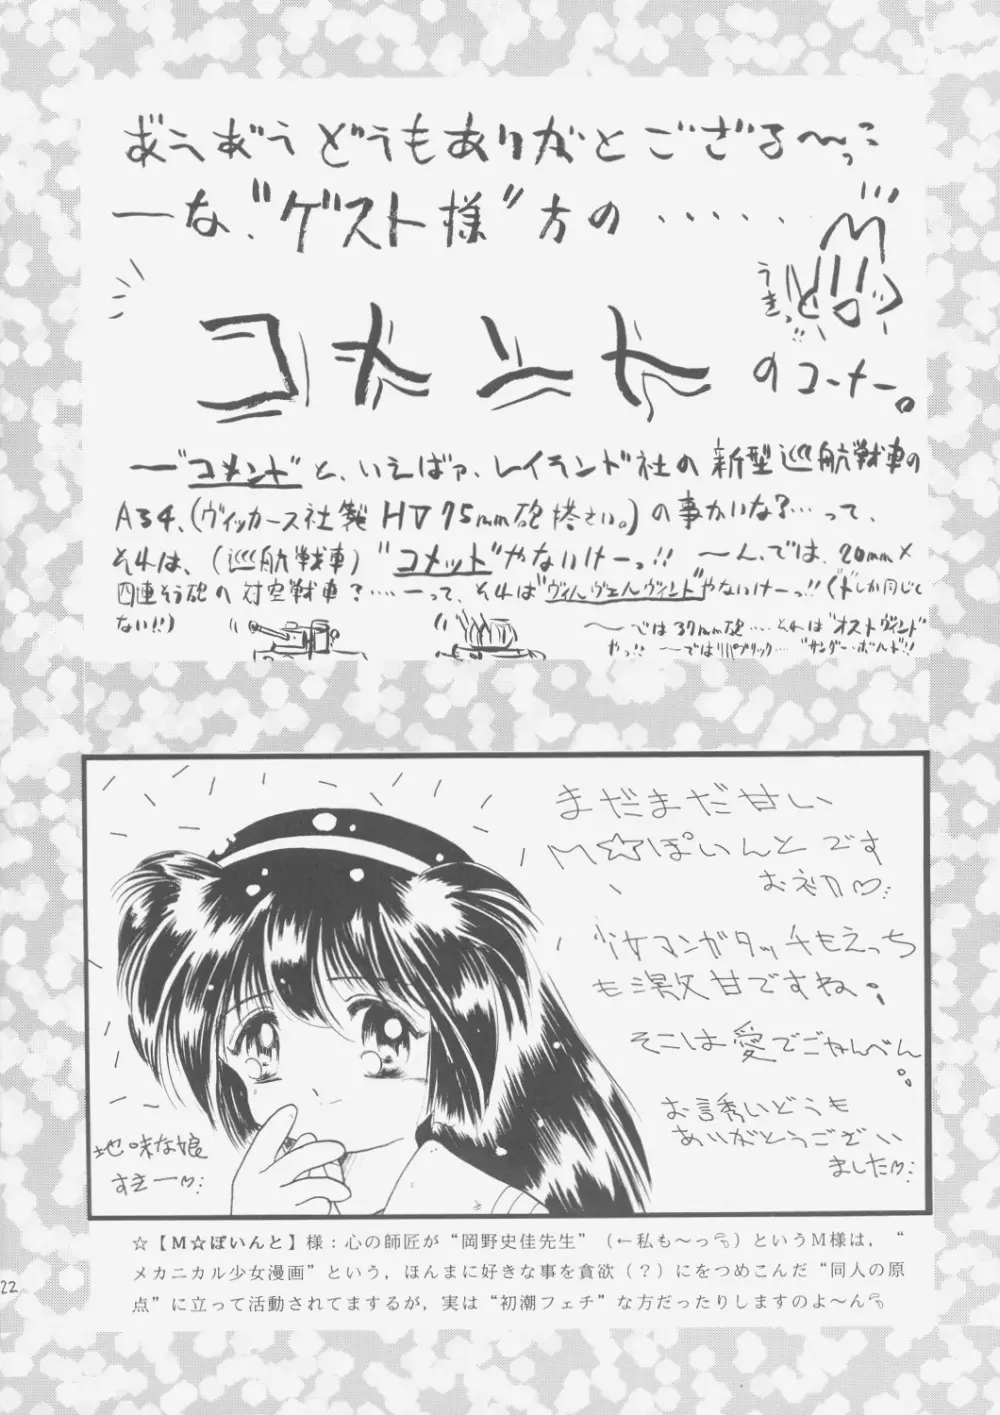 ぎうぎう どうもありがとござる〜っこ
ーな、“ゲスト様”方の‥‥‥
うきっ
コメント
のコーナー。
ー“コメンド”と、いえばァ、レイランド社の新型巡航戦車の
A34、(ヴィッカース社製HV75mm砲搭さい。)の事かいな?…って、
それは、(巡航戦車)“コメット”やないけーっ!! 〜ん、では、20mm×
四連そう砲の対空戦車?……ーって、それは“ヴィルヴェルヴィント”やないけーっ!!(ドしか同じく
ない!!)
〜では37mm砲……それは“オストヴィンド”
やっ!! 〜では リパブリック…“サンダーボルド”!!
まだまだ甘い
M☆ぽいんとです
おネカ
少女マンガタッチもえっち
も激甘ですね。
そこは愛でごめんべん
お誘いどうも
ありがとうござい
ました
地味な娘
すきー
☆【M☆ぽいんと】様：心の師匠が“岡野史佳先生”（←私も〜っ）というM様は，“
メカニカル少女漫画”という，ほんまに好きな事を貪欲（？）にをつめこんだ“同人の原
点”に立って活動されてまするが，実は“初潮フェチ”な方だったりしますのよ〜ん
22